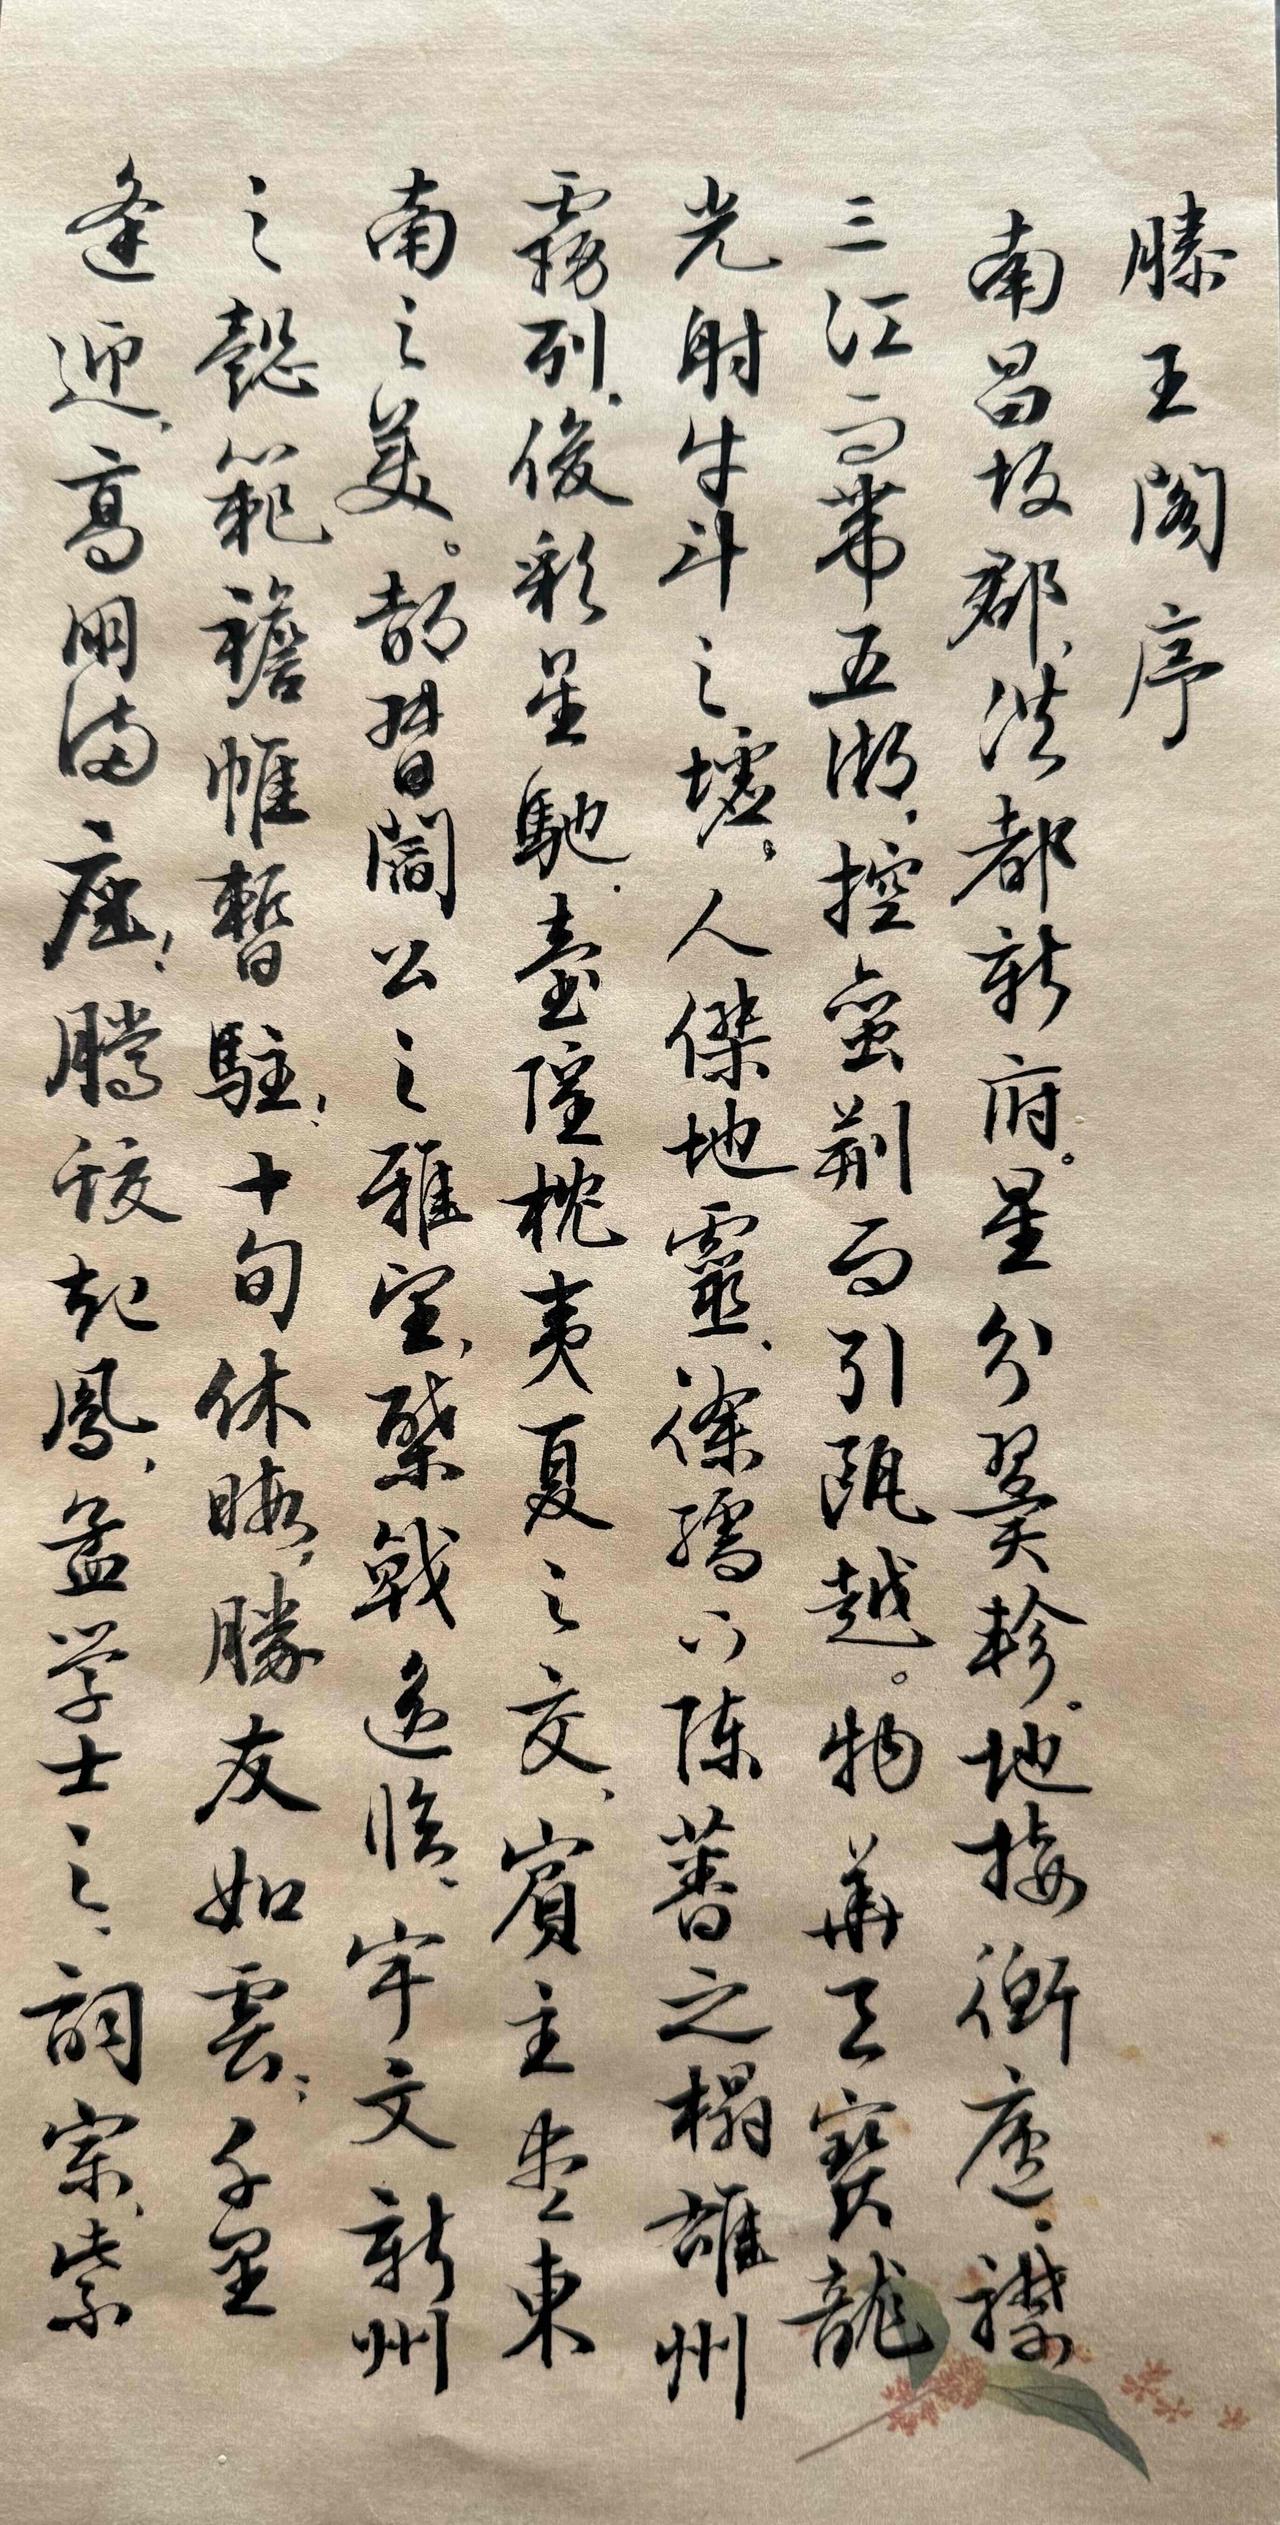 滕王阁序
南昌故郡、洪都新府。星分翼軫。地接衡廬。襟
三江而帶五湖，控蛮荆而引瓯越。物華天寶龍
光射牛斗之墟。人傑地靈、徐孺下陈蕃之榻雄州
霧列，俊彩星馳．臺隍枕夷夏之交、賓主盡東
南之美。都督閻公之雅望、棨戟遥临、宇文新州
之懿範襜帷暫駐，十旬休暇，勝友如雲；千里
逢迎、高朋满座，腾蛟起鳳、孟学士之、詞宗、紫